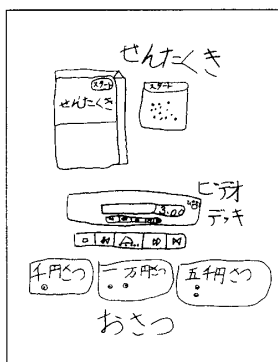 せんたくき
スタート
せんたくき
スタート
ビデオ
デッキ
3:00
千円さつ
一万円さつ
五千円さつ
おさつ